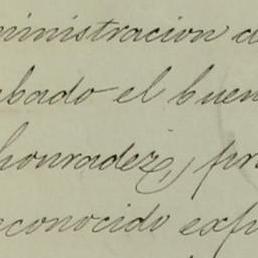 ministracion d
bado el buen
honradez, pr
econocido exp